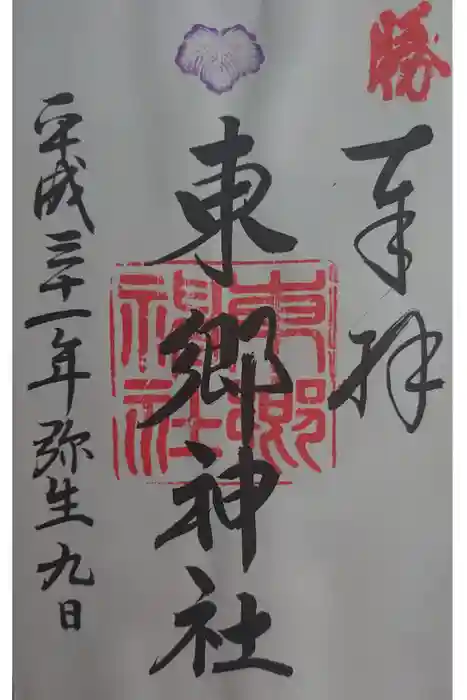 勝
奉拝
東郷神社
東郷神社
平成三十一年弥生九日